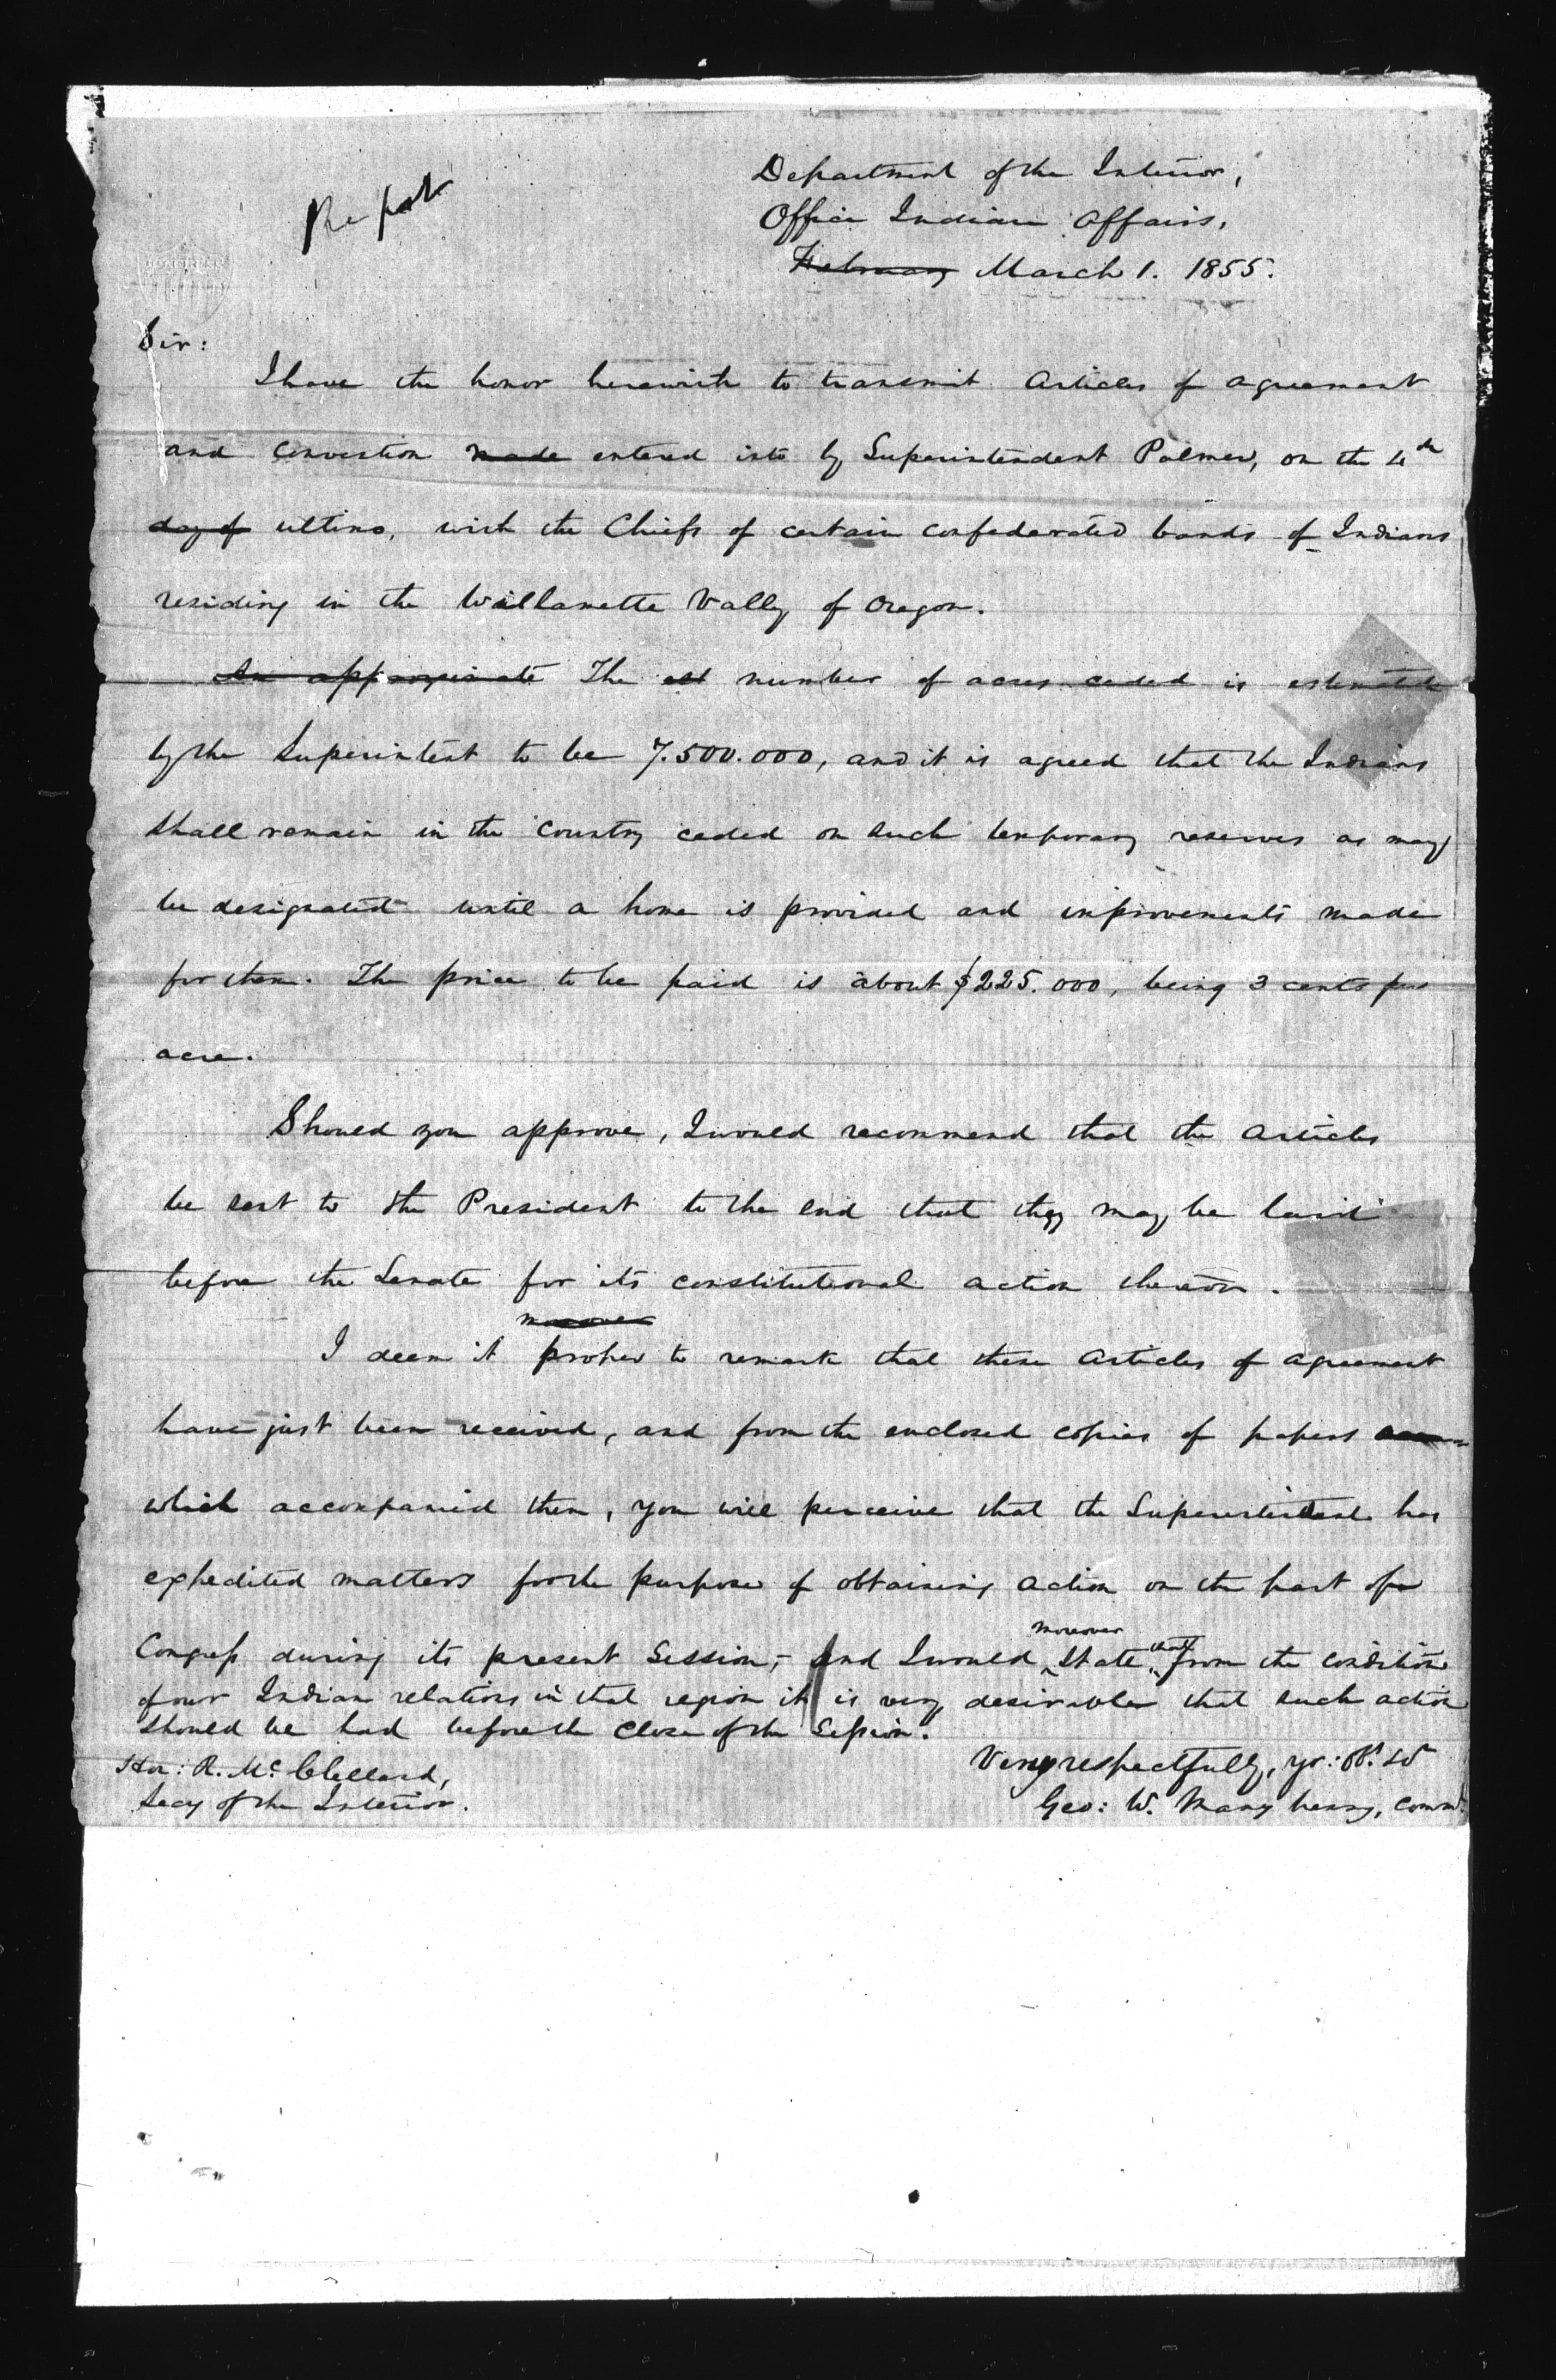 Report
Department of the Interior,
Office Indian Affairs,
February March 1. 1855.
CONGRESS
Sir:
I have the honor herewith to transmit articles of agreement
and convention made entered into by Superintendent Palmer, on the 4th
day of ultimo, with the Chiefs of certain confederated bands of Indians
residing in the Willamette Vally of Oregon.
An approximate The number of acres ceded is estimated
by the Superintent to be 7.500.000, and it is agreed that the Indians
shall remain in the Country ceded on such temporary reserves as may
be designated until a home is provided and improvements made
for them. The price to be paid is about $225.000, being 3 cents per
acre.
Should you approve, I would recommend that the articles
be sent to the President to the end that they may be laid
before the Senate for its constitutional action thereon.
moreover
I deem it proper to remark that these articles of agreement
have just been received, and from the enclosed copies of papers
which accompanied them, you will perceive that the Superintendent has
expedited matters for the purpose of obtaining action on the part of
moreover that
Congress during its present Session, - and I would state from the condition
of our Indian relations in that region it is very desirable that such action
should be had before the close of the Session.
Very respectfully, yr: Ob. St
Hon: R. McClelland,
Secy of the Interior.
Geo: W. Manypenny, Comr.